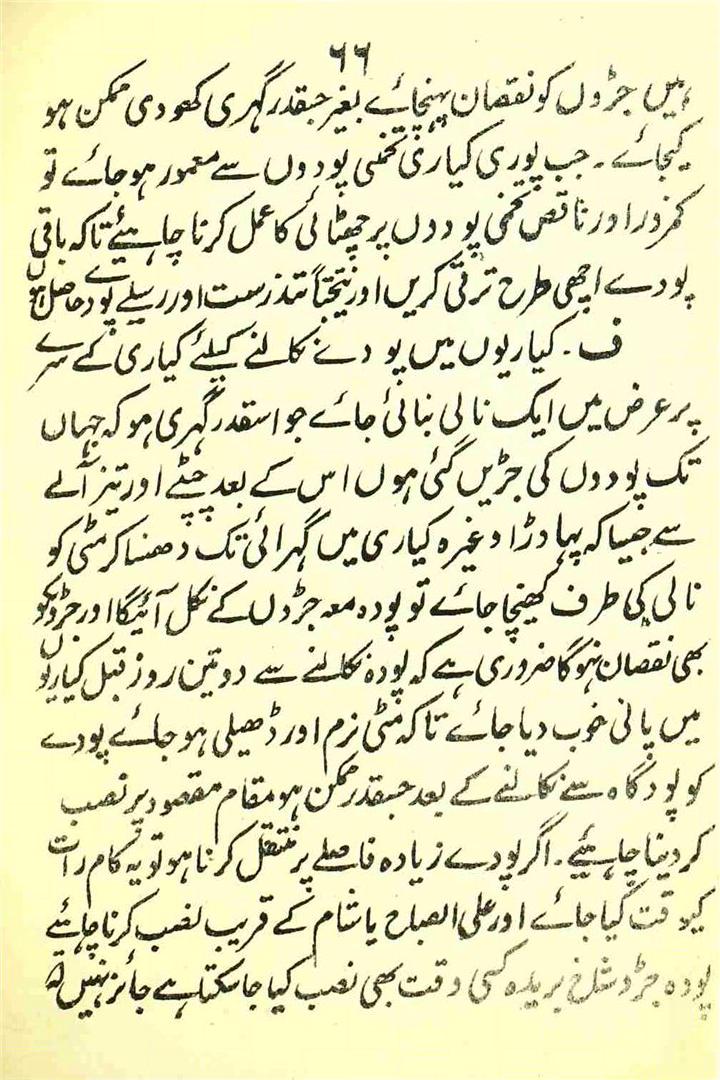 ۶۶
میں جڑوں کو نقصان پہنچائے بغیر جسقدر گہری کھودی ممکن ہو
کیجائے ۔ جب پوری کیاری تخمی پودوں سے معمور ہو جائے تو
کمزور اور ناقص تخمی پودوں پر چھٹائی کا عمل کرنا چاہیئے تاکہ باقی
پودے اچھی طرح ترقی کریں اور نیتجتاً تندرست اور رسیلے پودے حاصل ہوں
ف ۔ کیاریوں میں پودے نکالنے کیلئے کیاری کے سرے
پر عرض میں ایک نالی بنائی جائے جو اسقدر گہری ہو کہ جہاں
تک پودوں کی جڑیں گئی ہوں اس کے بعد چپٹے اور تیز آلے
سے جیسا کہ پہاوڑا وغیرہ کیاری میں گہرائی تک دھنسا کر مٹی کو
نالی کی طرف کھینچا جائے تو پودہ معہ جڑوں کے نکل آئیگا اور جڑوں کو
بھی نقصان نہوگا ضروری ہے کہ پودہ نکالنے سے دو تین روز قبل کیاریوں
میں پانی خوب دیا جائے تاکہ مٹی نرم اور ڈھیلی ہو جائے پودے
کو پودگاہ سے نکالنے کے بعد جسقدر ممکن ہو مقام مقصود پر نصب
کر دینا چاہیئے ۔ اگر پودے زیادہ فاصلے پر منتقل کرنا ہو تو یہ کام رات
کیوقت کیا جائے اور علی الصباح یا شام کے قریب نصب کرنا چاہیئے
پودہ جڑ و شاخ بریدہ کسی وقت بھی نصب کیا جا سکتا ہے جائز نہیں کہ